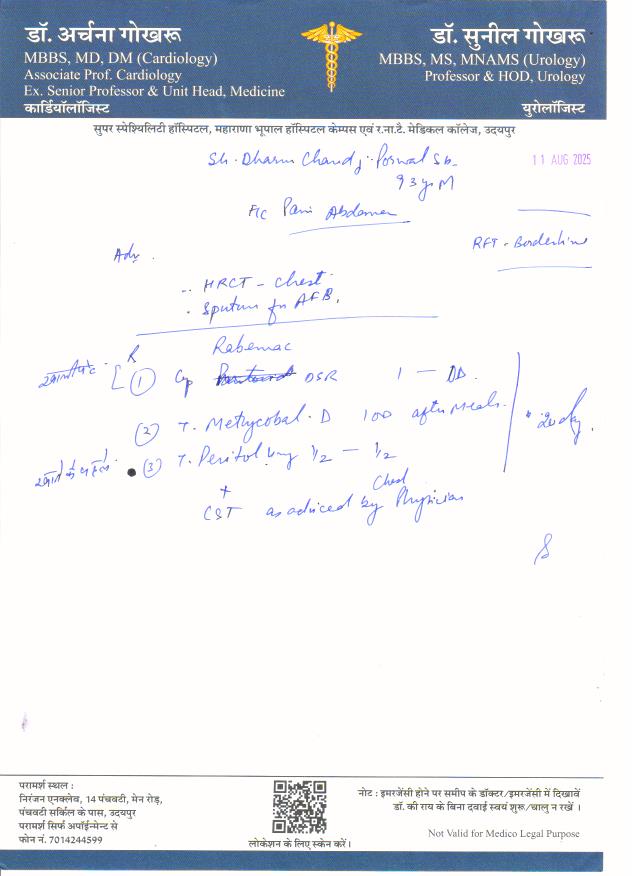 डॉ. अर्चना गोखरू
MBBS, MD, DM (Cardiology)
Associate Prof. Cardiology
Ex. Senior Professor & Unit Head, Medicine
कार्डियॉलॉजिस्ट
डॉ. सुनील गोखरू
MBBS, MS, MNAMS (Urology)
Professor & HOD, Urology
युरोलॉजिस्ट
सुपर स्पेश्यिलिटी हॉस्पिटल, महाराणा भूपाल हॉस्पिटल केम्पस एवं र.ना.टै. मेडिकल कॉलेज, उदयपुर
Sh. Dharm Chand ji Porwal Sb.
11 AUG 2025
93 yr M
Pain Abdomen
RFT - Borderline
Adv.
HRCT - Chest
Sputum for AFB.
R
Rabemac
खाली पेट
1 Cap DSR 1 — OD.
2 T. Methycobal. D 100 after Meals.
20 day.
खाने के पहले
3 T. Peritol 1/2 — 1/2
+
CST as adviced by Chest Physician
परामर्श स्थल :
निरंजन एनक्लेव, 14 पंचवटी, मेन रोड़,
पंचवटी सर्किल के पास, उदयपुर
परामर्श सिर्फ अपॉईन्मेन्ट से
फोन नं. 7014244599
लोकेशन के लिए स्केन करें।
नोट : इमरजेंसी होने पर समीप के डॉक्टर/इमरजेंसी में दिखावें
डॉ. की राय के बिना दवाई स्वयं शुरू/चालु न रखें ।
Not Valid for Medico Legal Purpose